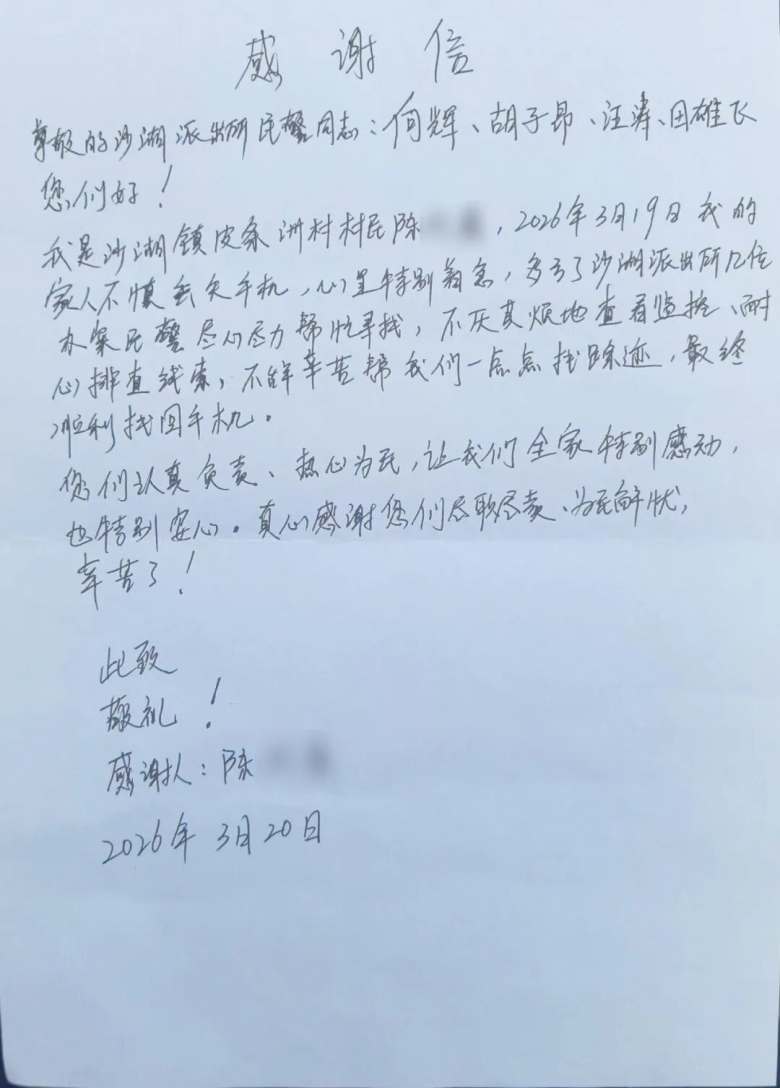 感谢信
尊敬的沙湖派出所民警同志：何辉、胡子昂、汪涛、田雄飞
您们好！
我是沙湖镇皮条洲村村民陈，2026年3月19日我的
家人不慎丢失手机，心里特别着急，多亏了沙湖派出所几位
办案民警尽心尽力帮忙寻找，不厌其烦地查看监控、耐
心排查线索，不辞辛苦帮我们一点点找踪迹，最终
顺利找回手机。
您们认真负责、热心为民，让我们全家特别感动，
也特别安心。真心感谢您们尽职尽责、为民解忧，
辛苦了！
此致
敬礼！
感谢人：陈
2026年3月20日